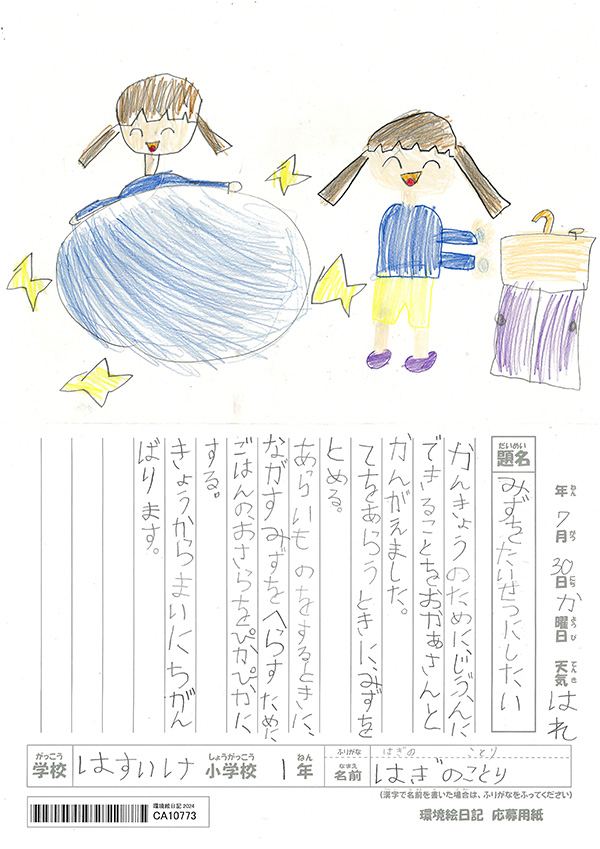 年 7月 30日 か曜日 天気 はれ
ねん がつ にち ようび てんき
だいめい
題名 みずをたいせつにしたい
かんきょうのために、じぶんに
できることをおかあさんと
かんがえました。
てをあらうときに、みずを
とめる。
あらいものをするときに、
ながすみずをへらすために
ごはんのおさらをぴかぴかに
する。
きょうからまいにちがん
ばります。
がっこう しょうがっこう ねん
学校 はすいけ 小学校 1年
ふりがな はぎの ことり
なまえ
名前 はぎのことり
(漢字で名前を書いた場合は、ふりがなをふってください)
環境絵日記2024
CA10773
環境絵日記 応募用紙